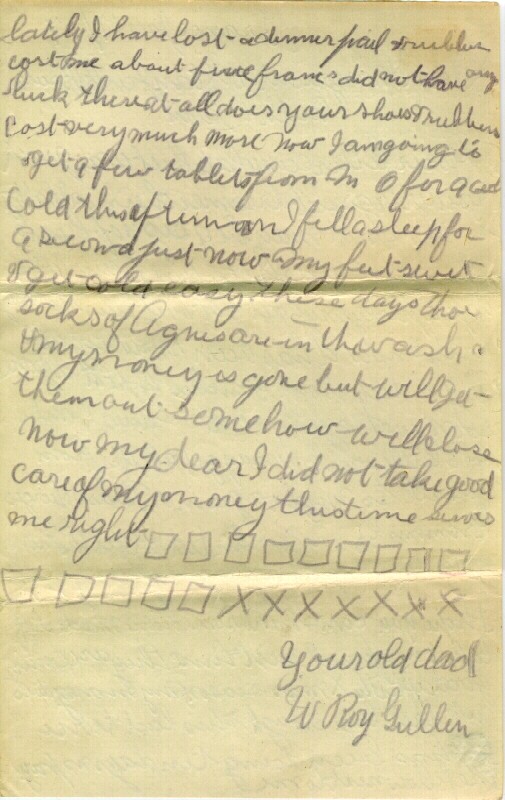 lately I have lost a dinner pail & rubbers
cost me about five francs did not have any
luck there at all does yours shoes & rubbers
cost very much more now I am going to
get a few tablets from M O for a cold
Cold this afternoon I fell asleep for
a second just now my feet swet
& get cold easy these days thoe
socks of Agnes are in the wash
& my money is gone but will get
them out somehow will close
now my dear I did not take good
care of my money this time serves
me right □ □ □ □ □ □ □ □ □
□ □ □ □ □ X X X X X X X
Your old dad
W Roy Gullen